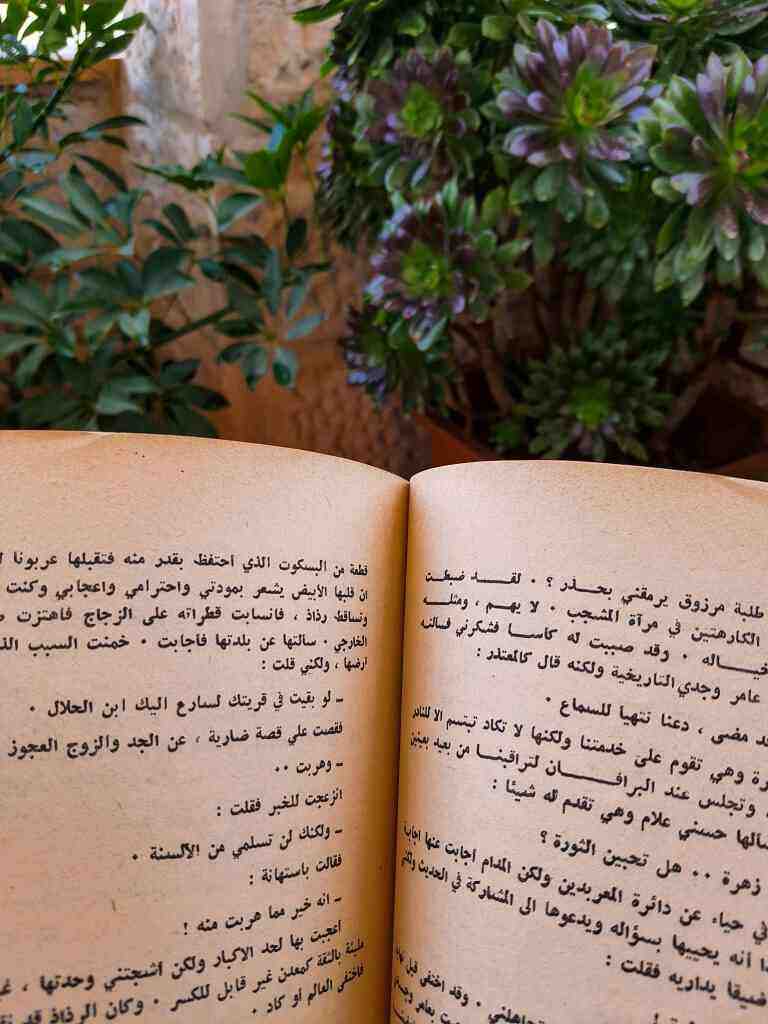 طلبة مرزوق يرمقني بحـــذر ؟ . لقـــد ضبطـت
الكارهتين في مرآة المشجب . لا يهم ، ومثلـــه
خيـــاله . وقد صببت له كاســـا فشكرني فسالتـه
عامر وجدي التاريخية ولكنه قال كالمعتذر :
مضى ، دعنا نتهيا للسماع .
وهي تقوم على خدمتنا ولكنها لا تكاد تبتسم الا للنادر
، وتجلس عند البرافـــــان لتراقبنـــا من بعيد بعينين
حسني علام وهي تقدم له شيئا :
زهرة .. هل تحبين الثورة ؟
في حياء عن دائرة المعربدين ولكن المدام اجابت عنها اجابة
أنه يحييها بسؤاله ويدعوها الى المشاركة في الحديث ولكني
ضيقا يداريه فقلت :
تجاهلني . وقد اختفى قبل
قطعة من البسكوت الذي احتفظ بقدر منه فتقبلها عربونا
ان قلبها الأبيض يشعر بمودتي واحترامي واعجابي وكنت
وتساقط رذاذ ، فانسابت قطراته على الزجاج فاهتزت
الخارجي . سالتها عن بلدتها فاجابت . خمنت السبب
أرضها ، ولكني قلت :
ـ لو بقيت في قريتك لسارع اليك ابن الحلال .
فقصت علي قصة ضارية ، عن الجد والزوج العجوز
ـ وهربت ..
انزعجت للخبر فقلت :
ـ ولكنك لن تسلمي من الألسنة .
فقالت باستهانة :
ـ انه خير مما هربت منه !
اعجبت بها لحد الاكبار ولكن اشجتني وحدتها ،
مليئة بالثقة كمعدن غير قابل للكسر . وكان الرذاذ قد
فاختفى العالم او كاد .